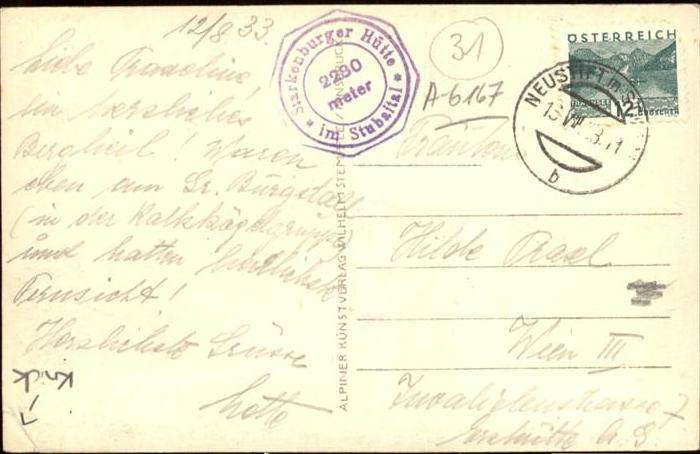 12/8 33
Liebe Traxeline,
ein herzliches
Bergheil! Waren
eben am Gr. Burgstall
(in der Kalkkögelgruppe)
und hatten herrlichste
Fernsicht!
Herzlichste Grüsse
Lotte
Knick
Starkenburger Hütte
2230
meter
* im Stubaital *
31
A-6167
ÖSTERREICH
12 GROSCHEN
NEUSTIFT
13.VIII.33.11
b
ALPINER KUNSTVERLAG WILHELM STEMPFLE / INNSBRUCK
Fräulein
Hilde
Wien III
Invalidenstrasse 7